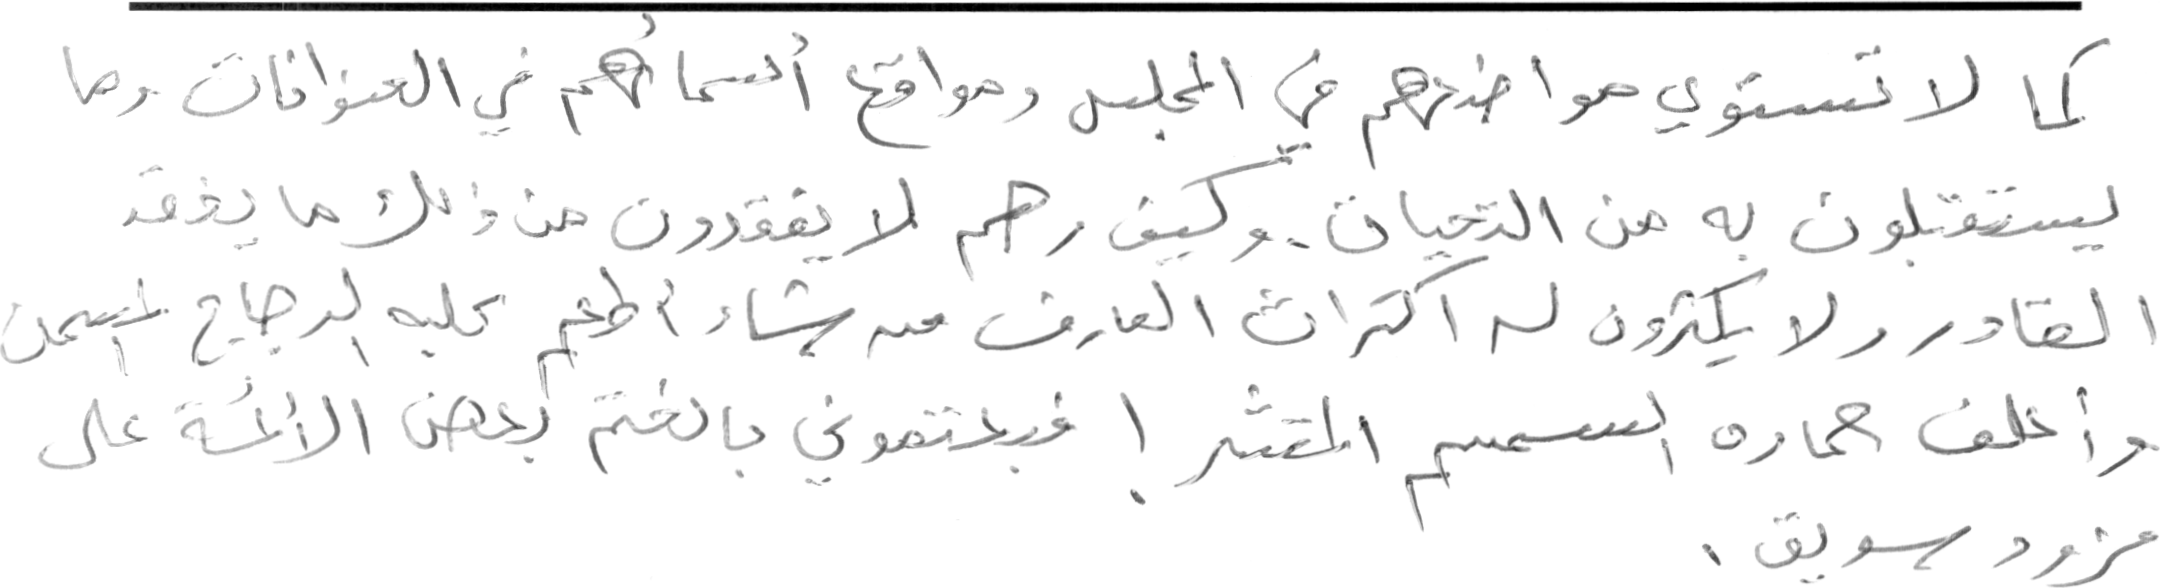 كما لا تستوي مواضعهم في المجلس ومواقع أسمائهم في العنوانات وما
يستقبلون به من التحيات. وكيف رحم لا يفقدون من ذلك ما يفقد
القادر ولا يكترثون له اكتراث العارف من شاء أطعم كلبه الدجاج المسمن
وأعلف حماره السمسم المقشر! فبعثتموني بالختم بعض الائمة على
مزود سويق.